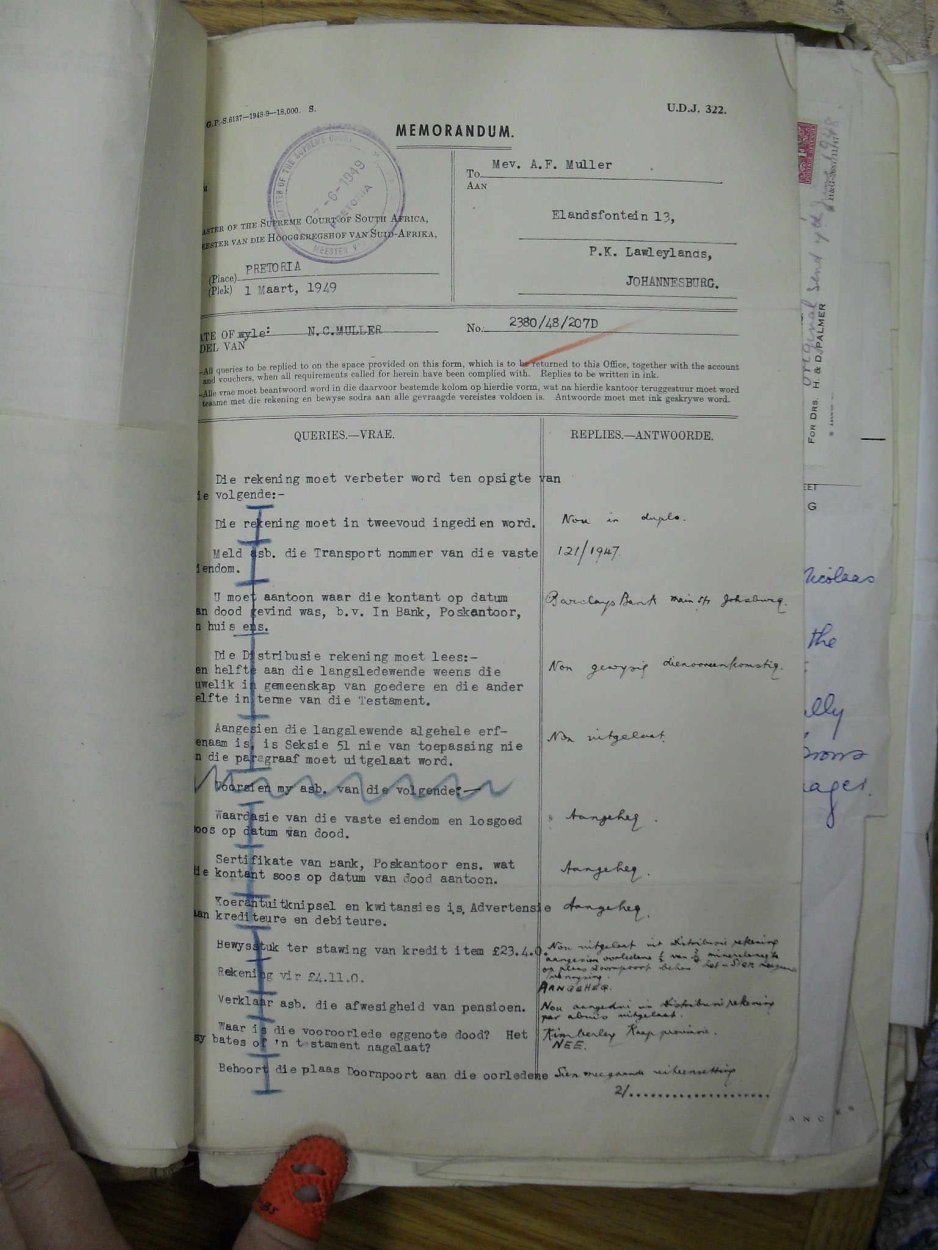 G.P.-S.6137—1948-9—18,000. S.
U.D.J. 322.
MEMORANDUM.
OF THE SUPREME COURT
-6-1949
PRETORIA
MEESTER V
To Mev. A.F. Muller
AAN
ASTER OF THE SUPREME COURT OF SOUTH AFRICA,
EESTER VAN DIE HOOGGEREGSHOF VAN SUID-AFRIKA,
Elandsfontein 13,
P.K. Lawleylands,
(Place) PRETORIA
JOHANNESBURG.
(Plek) 1 Maart, 1949
ATE OF wyle: N.C.MULLER No. 2380/48/207D
DEL VAN
—All queries to be replied to on the space provided on this form, which is to be returned to this Office, together with the account
and vouchers, when all requirements called for herein have been complied with. Replies to be written in ink.
—Alle vrae moet beantwoord word in die daarvoor bestemde kolom op hierdie vorm, wat na hierdie kantoor teruggestuur moet word
tesame met die rekening en bewyse sodra aan alle gevraagde vereistes voldoen is. Antwoorde moet met ink geskrywe word.
QUERIES.—VRAE. REPLIES.—ANTWOORDE.
Die rekening moet verbeter word ten opsigte van
ie volgende:-
Die rekening moet in tweevoud ingedien word. Nou in duplo.
Meld asb. die Transport nommer van die vaste 121/1947.
iendom.
U moet aantoon waar die kontant op datum Barclays Bank main str Johsburg.
an dood gevind was, b.v. In Bank, Poskantoor,
n huis ens.
Die Distribusie rekening moet lees:-
en helfte aan die langsledewende weens die Nou gewysig dienooreenkomstig.
uwelik in gemeenskap van goedere en die ander
elfte in terme van die Testament.
Aangesien die langslewende algehele erf- Nou uitgelaat.
enaam is, is Seksie 51 nie van toepassing nie
n die paragraaf moet uitgelaat word.
Voorsien my asb. van die volgende:—
Waardasie van die vaste eiendom en losgoed Aangeheg.
oos op datum van dood.
Sertifikate van Bank, Poskantoor ens. wat Aangeheg.
ie kontant soos op datum van dood aantoon.
Koerantuitknipsel en kwitansies is, Advertensie Aangeheg.
aan krediteure en debiteure.
Bewysstuk ter stawing van kredit item £23.4.0. Nou uitgelaat uit distribusie rekening
aangesien oorledene
op plaas Doornpoort
Rekening vir £4.11.0. AANGEHEG.
Verklaar asb. die afwesigheid van pensioen. Nou aangedui in distribusie rekening
per abuis uitgelaat.
Waar is die vooroorlede eggenote dood? Het Kimberley Kaap provinsie.
sy bates of 'n testament nagelaat? NEE.
Behoort die plaas Doornpoort aan die oorledene Sien meegaande uiteensetting
2/....................
original send
1948
FOR DRS. H. & D. PALMER
EET
G
Nicolaas
the
ally
ager.